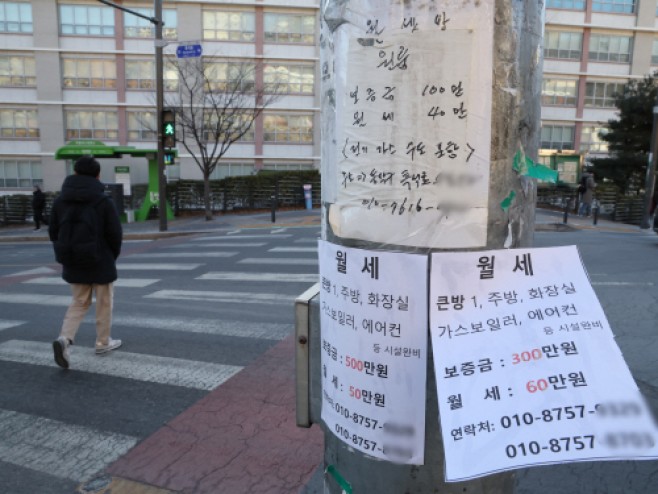 월세방
원룸
보증금 100만
월세 40만
(전기 가스 수도 포함)
010-7616-
월 세
큰방 1, 주방, 화장실
가스보일러, 에어컨
등 시설완비
보증금 : 500만원
월 세 : 50만원
010-8757-
010-8757-
월 세
큰방 1, 주방, 화장실
가스보일러, 에어컨
등 시설완비
보증금 : 300만원
월 세 : 60만원
연락처: 010-8757-
010-8757-